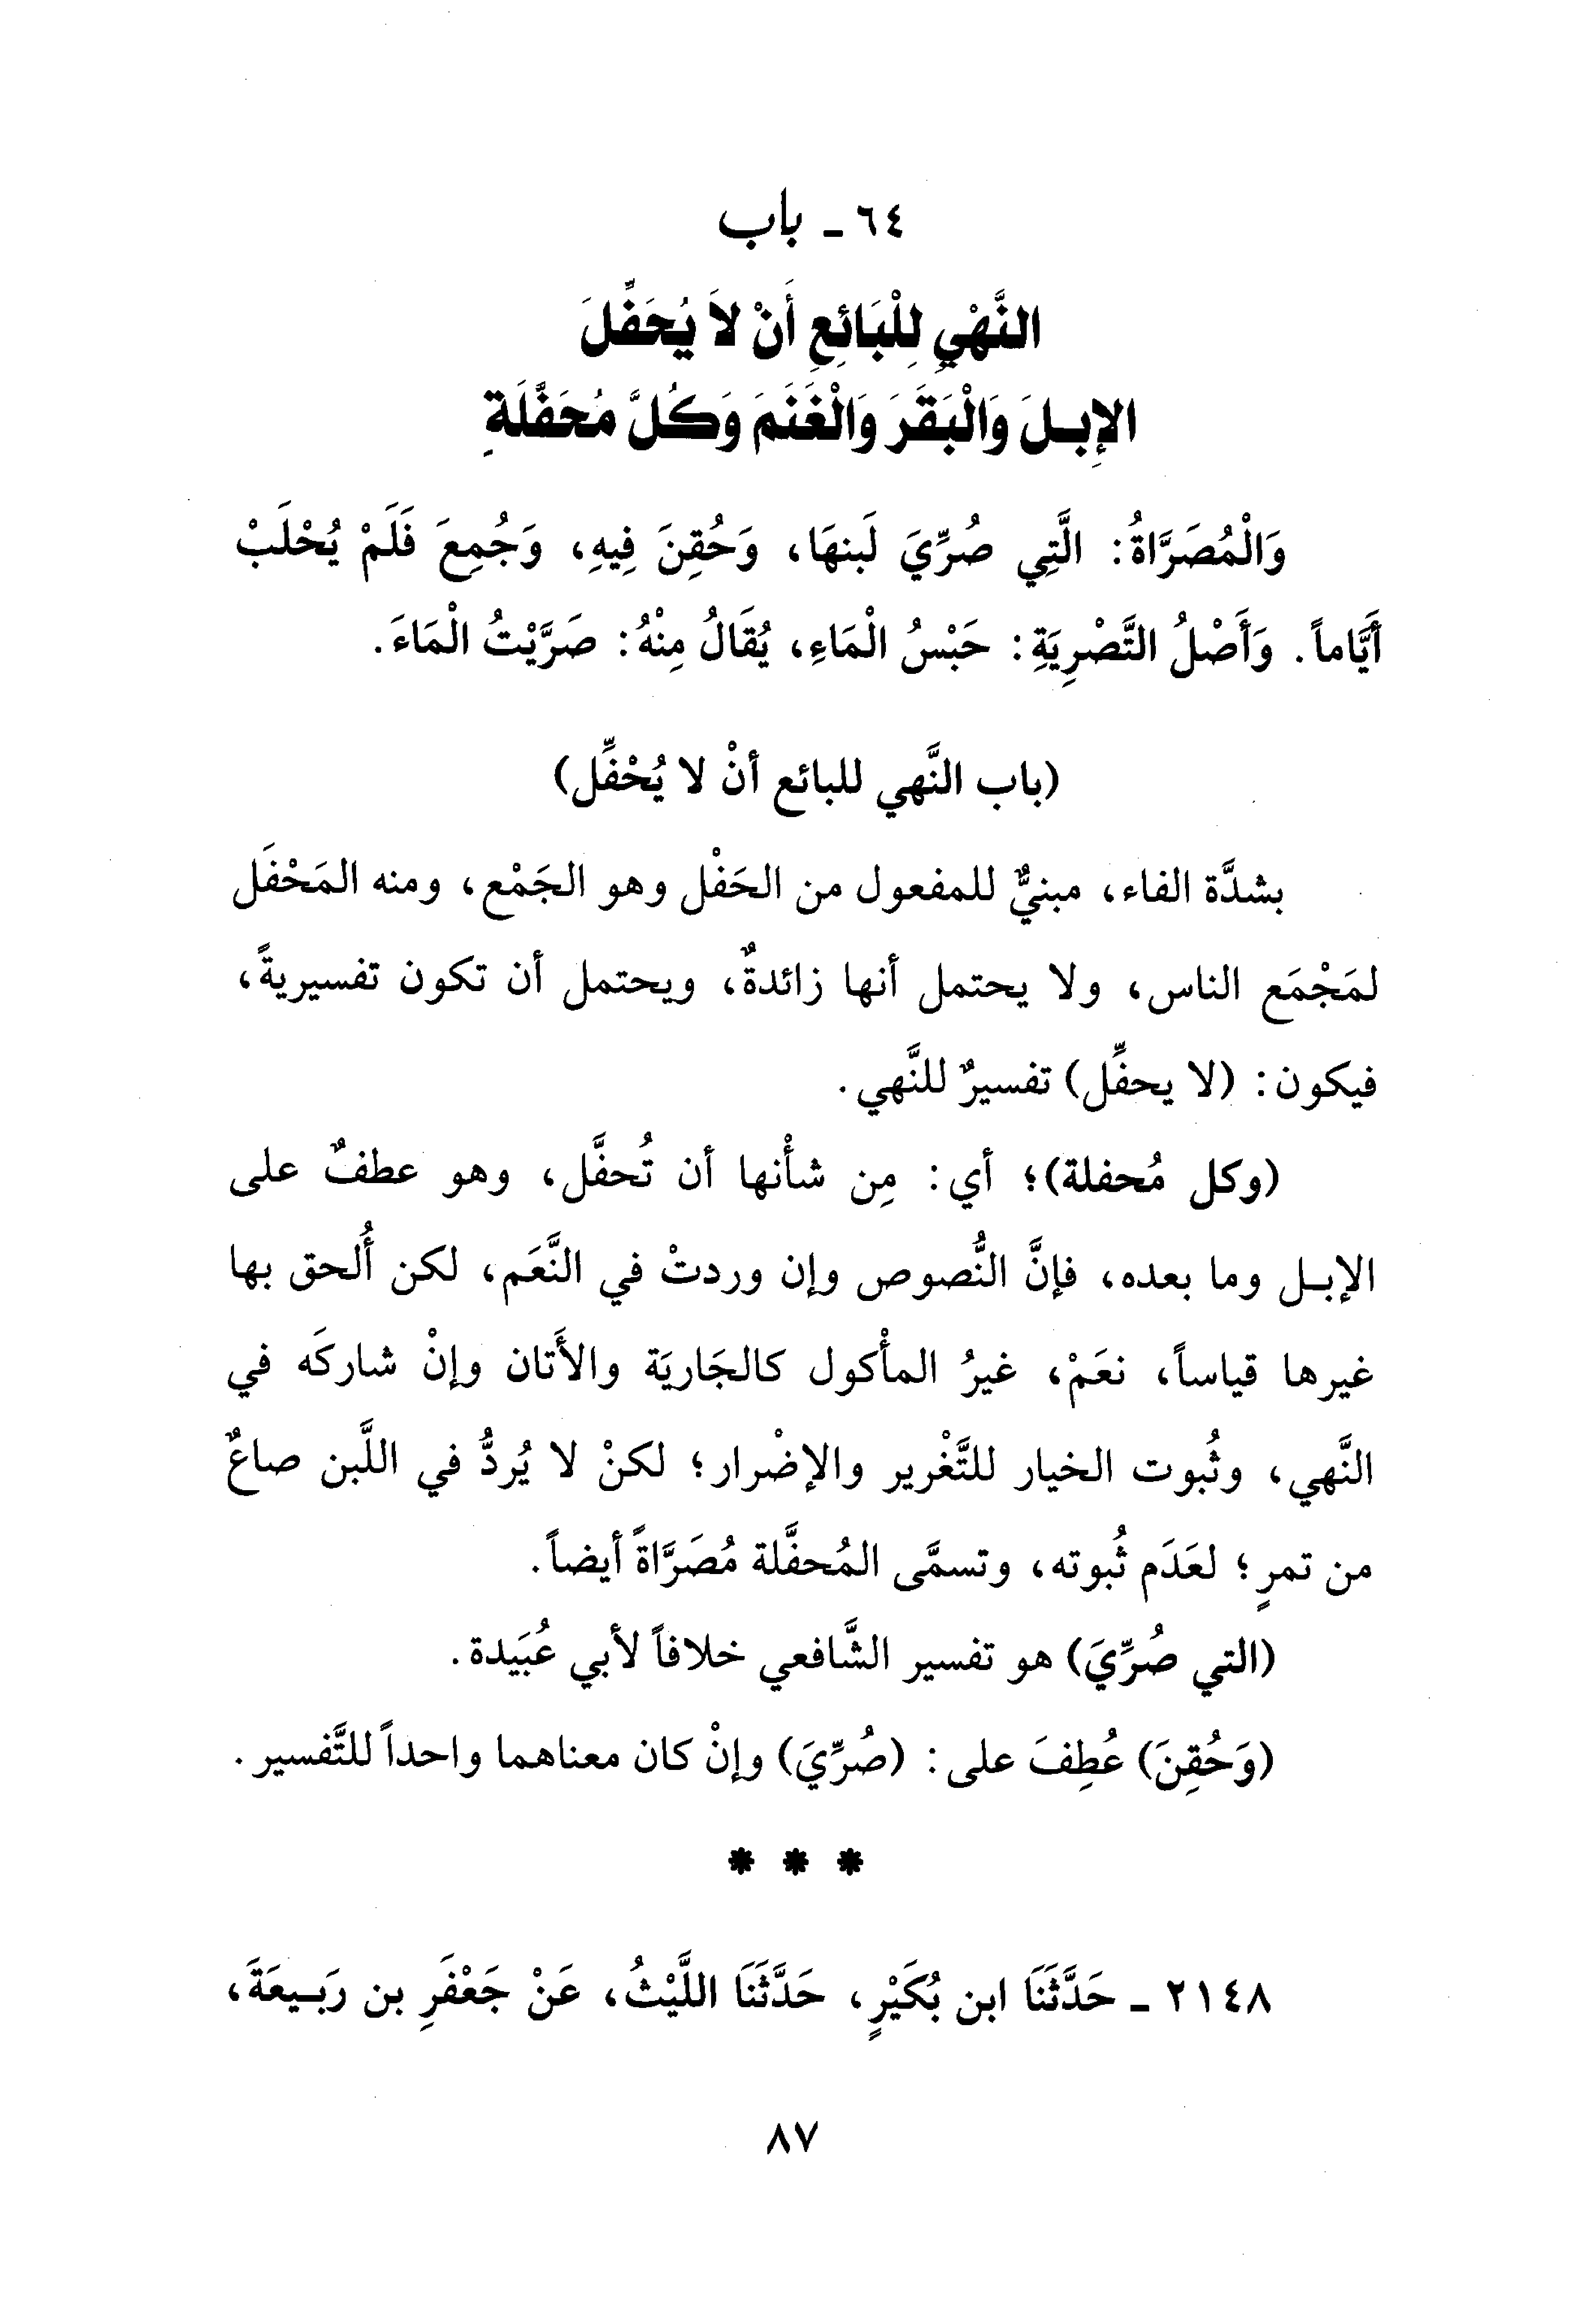 ٦٤ ـ باب
النَّهْيِ لِلْبَائِعِ أَنْ لاَ يُحَفِّلَ
الإِبـلَ وَالْبَقَرَ وَالْغَنَمَ وَكُلَّ مُحَفَّلَةٍ
وَالْمُصَرَّاةُ: الَّتِي صُرِّيَ لَبنهَا، وَحُقِنَ فِيهِ، وَجُمِعَ فَلَمْ يُحْلَبْ
أَيَّاماً. وَأَصْلُ التَّصْرِيَةِ: حَبْسُ الْمَاءِ، يُقَالُ مِنْهُ: صَرَّيْتُ الْمَاءَ.
(باب النَّهي للبائع أنْ لا يُحْفِّل)
بشدَّة الفاء، مبنيٌّ للمفعول من الحَفْل وهو الجَمْع، ومنه المَحْفَل
لمَجْمَع الناس، ولا يحتمل أنها زائدةٌ، ويحتمل أن تكون تفسيريةً،
فيكون: (لا يحفِّل) تفسيرٌ للنَّهي.
(وكل مُحفلة)؛ أي: مِن شأْنها أن تُحفَّل، وهو عطفٌ على
الإبـل وما بعده، فإنَّ النُّصوص وإن وردتْ في النَّعَم، لكن أُلحق بها
غيرها قياساً، نعَمْ، غيرُ المأْكول كالجَاريَة والأَتان وإنْ شاركَه في
النَّهي، وثُبوت الخيار للتَّغْرير والإضْرار؛ لكنْ لا يُردُّ في اللَّبن صاعٌ
من تمرٍ؛ لعَدَم ثُبوته، وتسمَّى المُحفَّلة مُصَرَّاةً أيضاً.
(التي صُرِّيَ) هو تفسير الشَّافعي خلافاً لأبي عُبَيدة.
(وَحُقِنَ) عُطِفَ على: (صُرِّيَ) وإنْ كان معناهما واحداً للتَّفسير.
* * *
٢١٤٨ ـ حَدَّثَنَا ابن بُكَيْرٍ، حَدَّثَنَا اللَّيْثُ، عَنْ جَعْفَرِ بن رَبـيعَةَ،
٨٧